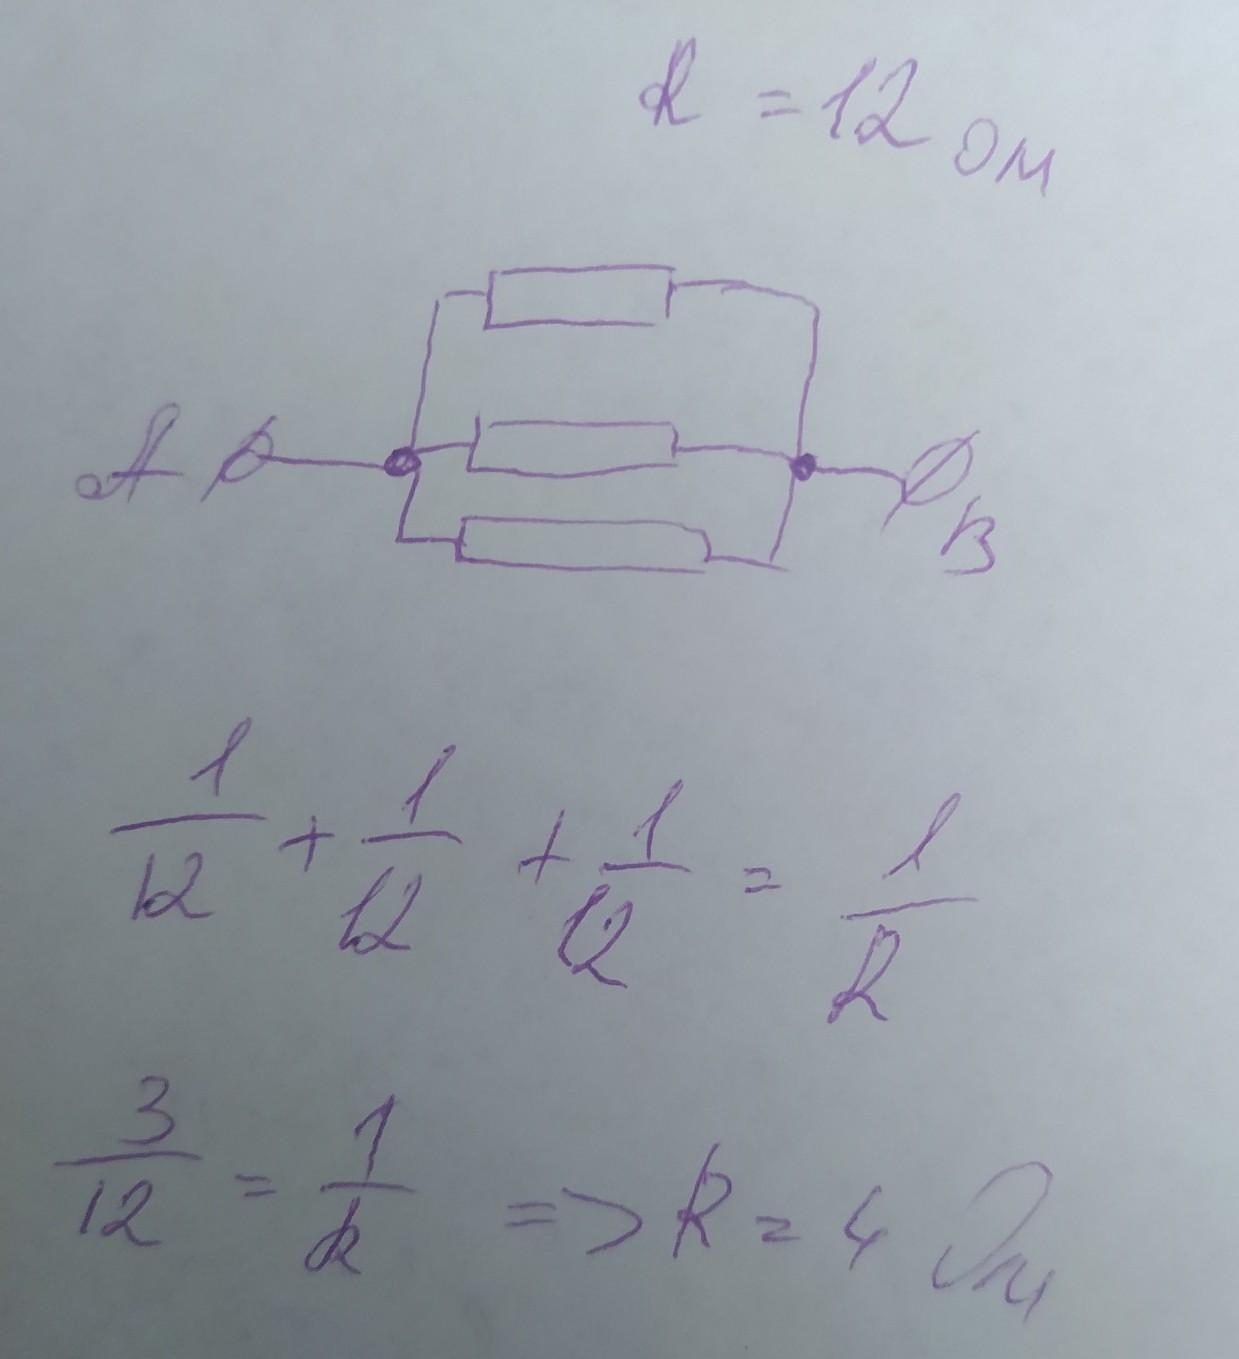 R = 12 Ом
A B
1/12 + 1/12 + 1/12 = 1/R
3/12 = 1/R => R = 4 Ом